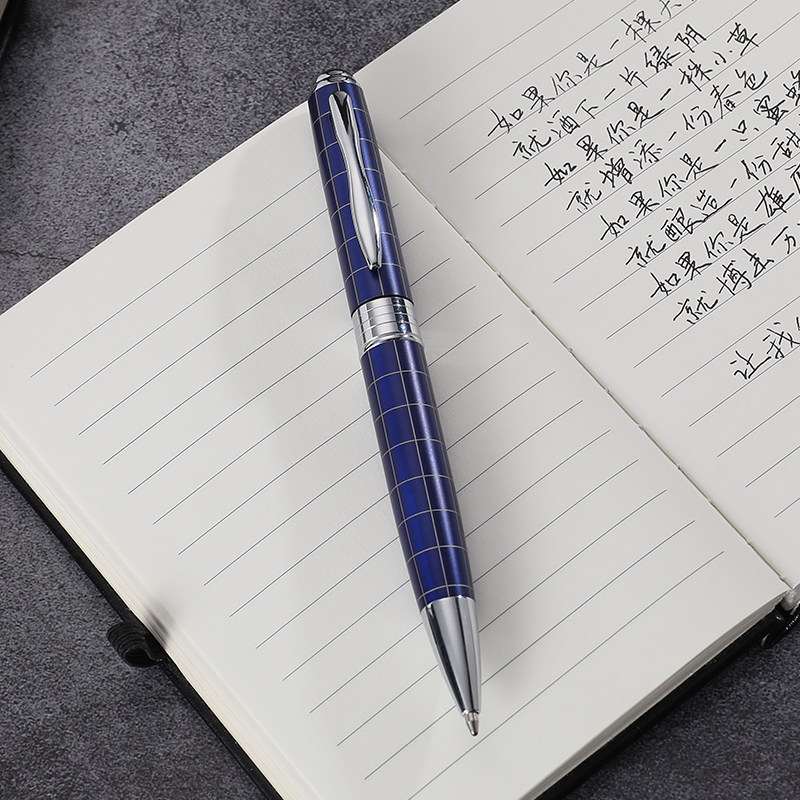 如果你是一棵大
就洒下一片绿阴
如果你是一株小草
就增添一份春色
如果你是一只蜜蜂
就酿造一份甜
如果你是雄
就搏击万
让我